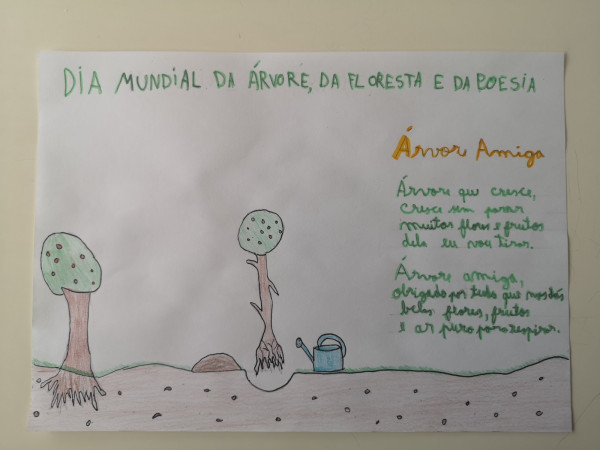 DIA MUNDIAL DA ÁRVORE, DA FLORESTA E DA POESIA
Árvor Amiga
Árvore que cresce,
cresce sem parar
muitas flores e frutos
dela eu vou tirar.
Árvore amiga,
obrigado por tudo que nos dás
belas flores, frutos
e ar puro para respirar.